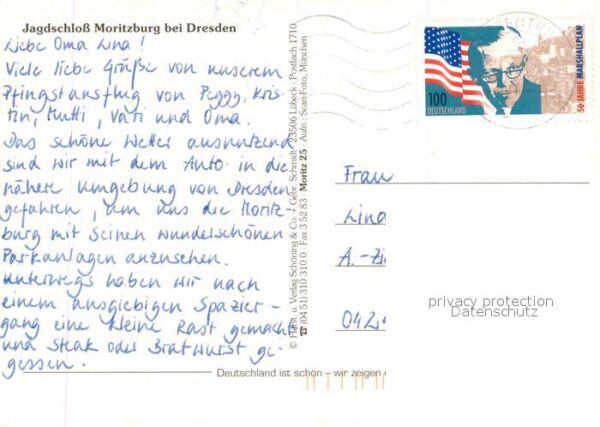 Jagdschloß Moritzburg bei Dresden
Liebe Oma Lina!
Viele liebe Grüße von unserem
Pfingstausflug von Peggy, Kris-
tin, Mutti, Vati und Oma.
Das schöne Wetter ausnutzend
sind wir mit dem Auto in die
nähere Umgebung von Dresden
gefahren, um uns die Moritz-
burg mit seinen wunderschönen
Parkanlagen anzusehen.
Unterwegs haben wir nach
einem ausgiebigen Spazier-
gang eine kleine Rast gemacht
und Steak oder Bratwurst ge-
gessen.
© Verlag Schöning & Co. + Gebr. Schmidt · 23506 Lübeck · Postfach 1710
☎ (04 51) 310 310 0 · Fax 3 52 83 · Moritz 25 · Aufn.: ScamFoto, München
100
DEUTSCHLAND
50 JAHRE MARSHALLPLAN
Frau
Lina
A.-Zi
042
privacy protection
Datenschutz
Deutschland ist schön – wir zeigen